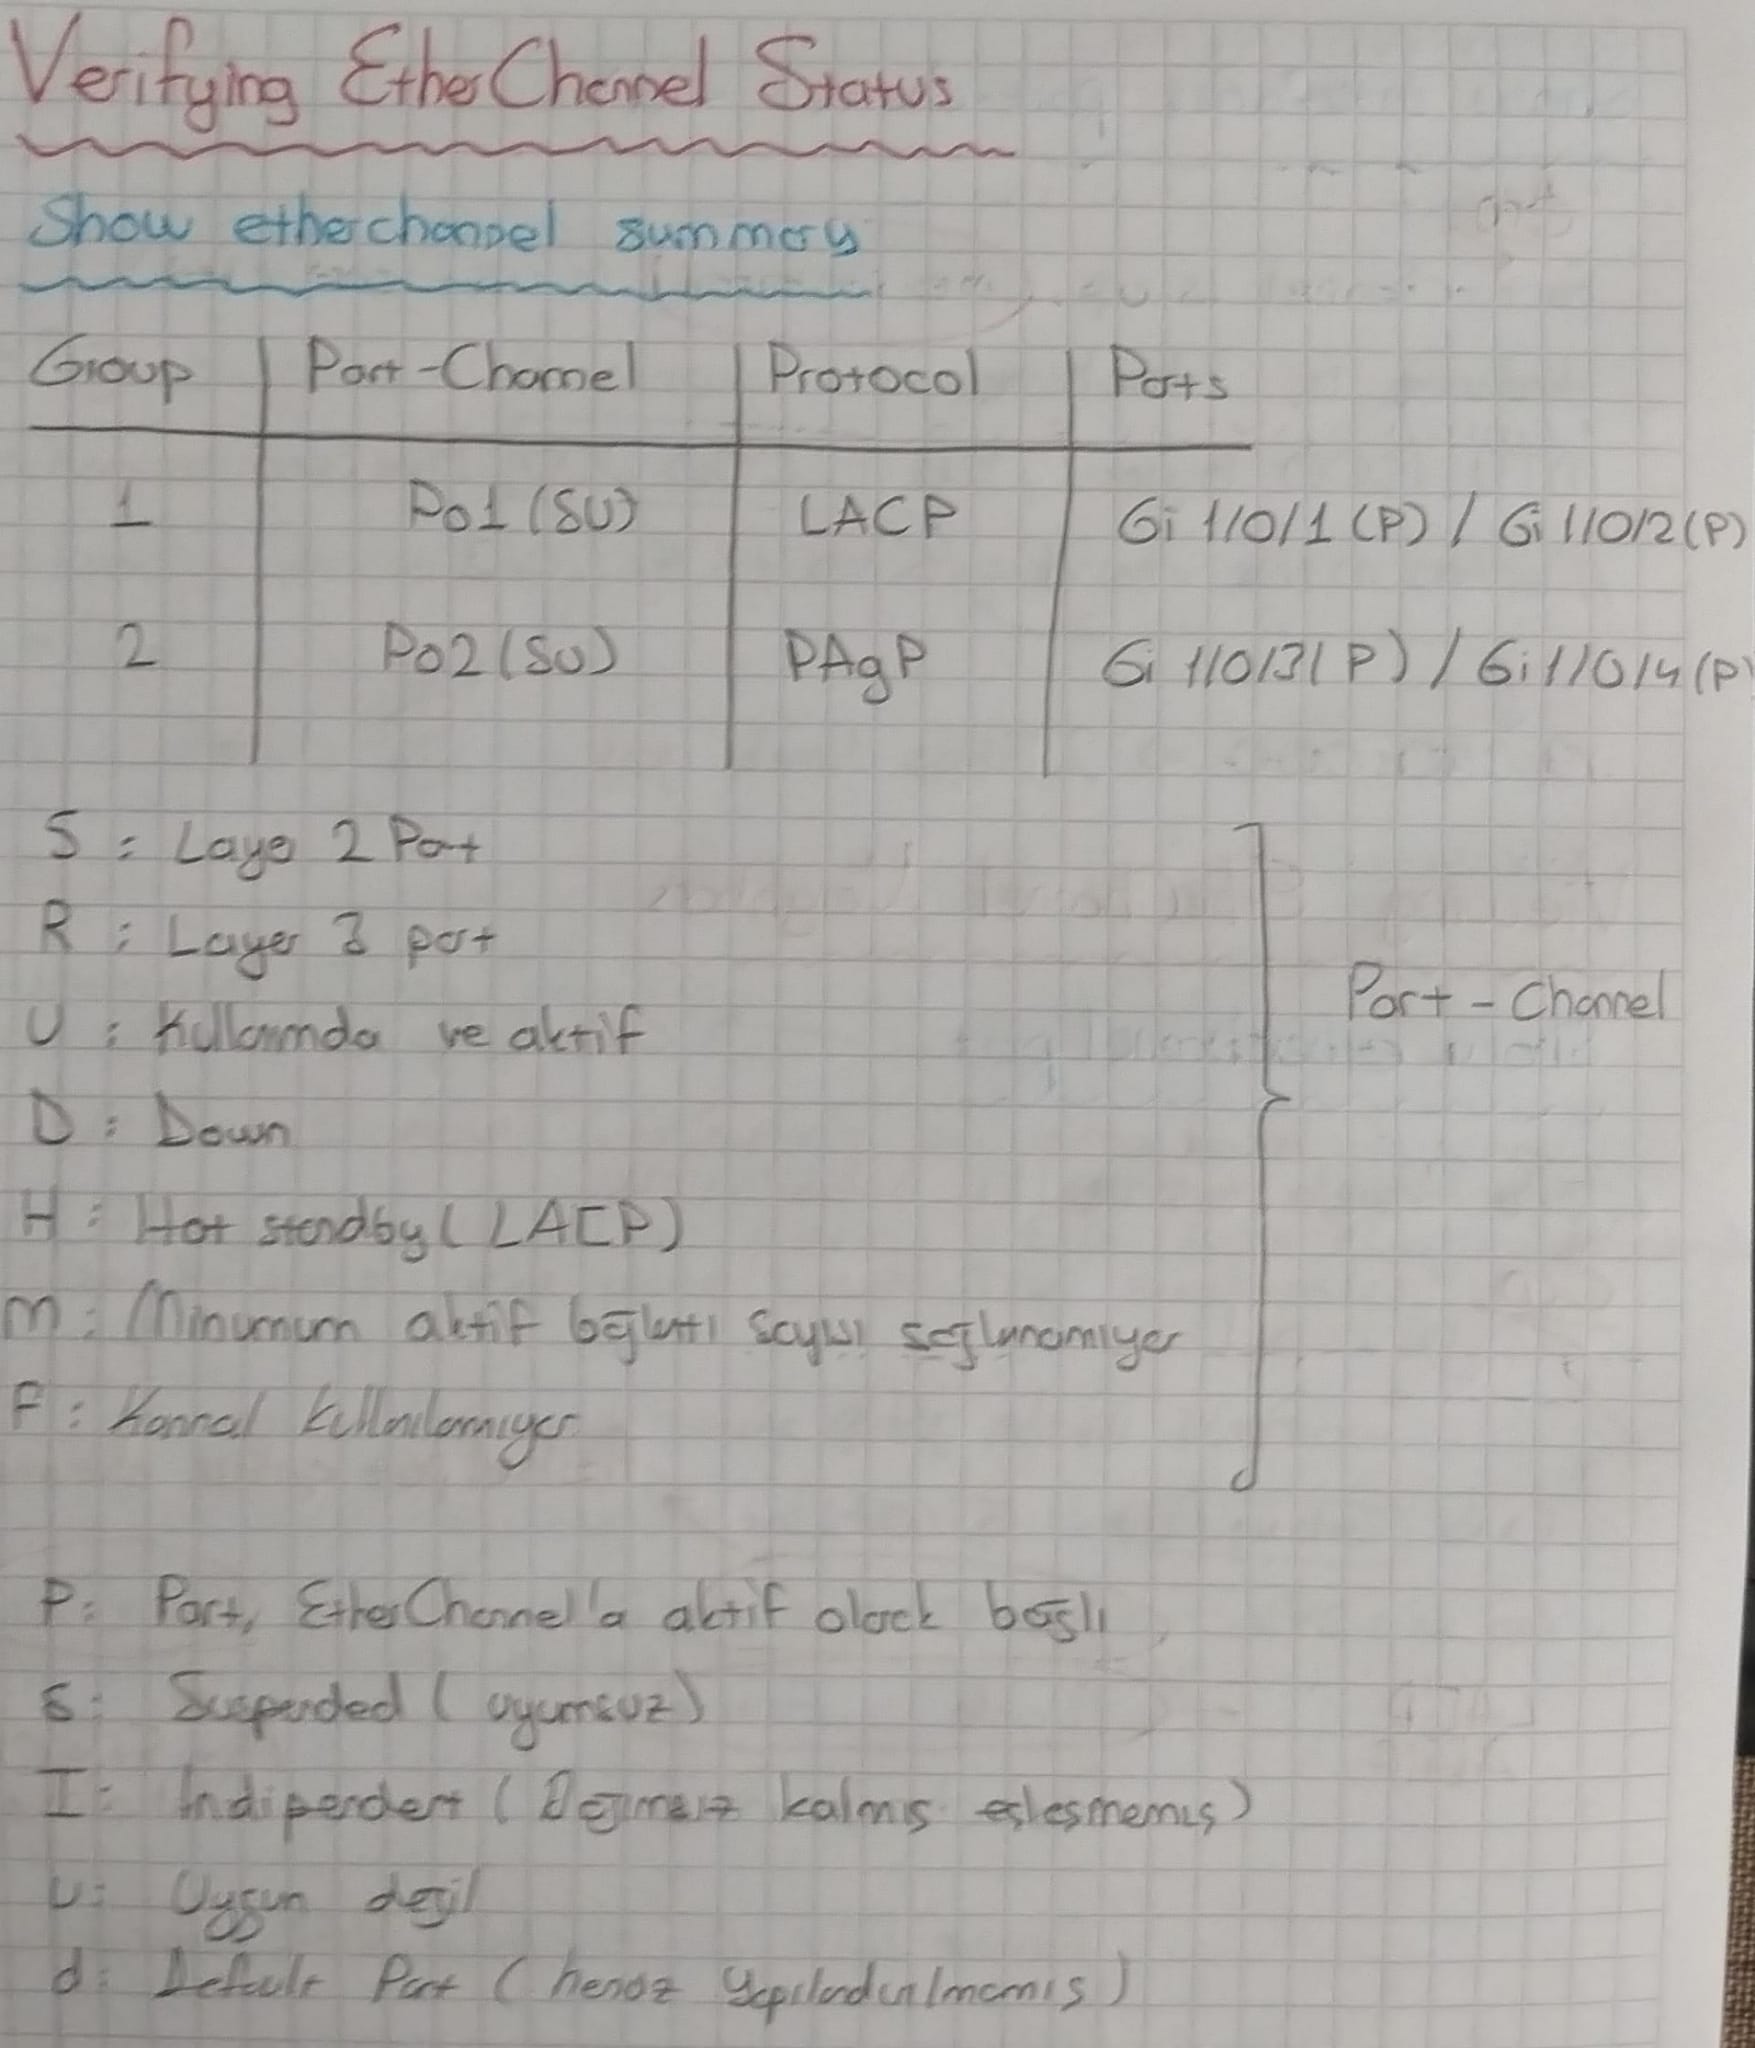 Verifying EtherChannel Status
Show etherchannel summary
Group | Port-Channel | Protocol | Ports
1 | Po1 (SU) | LACP | Gi 1/0/1 (P) / Gi 1/0/2 (P)
2 | Po2 (SU) | PAgP | Gi 1/0/3 (P) / Gi 1/0/4 (P)
S : Layer 2 Port
R : Layer 3 port
U : Kullanımda ve aktif
Port - Channel
D : Down
H : Hot standby ( LACP )
M : Minumum aktif bağlantı sayısı sağlanamıyor
F : Kannal kullanılamıyor
P : Port, EtherChannel'a aktif olarak bağlı
s : Suspended ( uyumsuz )
I : Indipendent ( Bağımsız kalmış eşleşmemiş )
u : Uygun değil
d : Default Port ( henüz yapılandırılmamış )